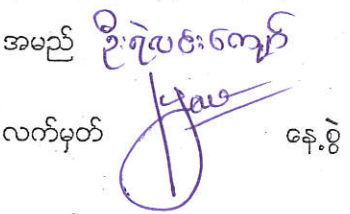 အမည် ဦးရဲလင်းကျော်
လက်မှတ် နေ့စွဲ